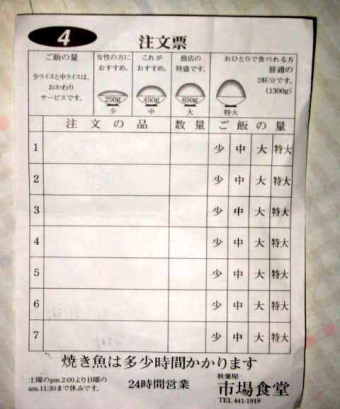 4 注文票
ご飯の量
少ライスと中ライスは、
おかわり
サービスです。
女性の方に
おすすめ。
250g
少
これが
おすすめ。
450g
中
当店の
特盛です。
大
おひとりで食べれる方
普通の
2杯分です。
(1300g)
特大
注文の品 数量 ご飯の量
1 少 中 大 特大
2 少 中 大 特大
3 少 中 大 特大
4 少 中 大 特大
5 少 中 大 特大
6 少 中 大 特大
7 少 中 大 特大
焼き魚は多少時間かかります
土曜のpm.2:00より日曜の
am.11:30まで休みです。
24時間営業
市場食堂
TEL 441-1919